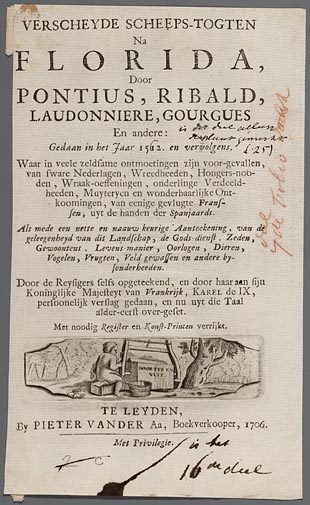 VERSCHEYDE SCHEEPS-TOGTEN
Na
FLORIDA,
Door
PONTIUS, RIBALD,
LAUDONNIERE, GOURGUES
En andere:
Gedaan in het Jaar 1562. en vervolgens.
Waar in veele zeldsame ontmoetingen zijn voor-gevallen,
van sware Nederlagen, Wreedheeden, Hongers-noo-
den, Wraak-oeffeningen, onderlinge Verdeeld-
heeden, Muyteryen en wonderbaarlijke Ont-
koomingen, van eenige gevlugte Fransz-
sen, uyt de handen der Spanjaards.
Als mede een nette en naauw keurige Aanteekening, van de
geleegenheyd van dit Landschap, de Gods-dienst, Zeden,
Gewoontens, Levens-manier, Oorlogen, Dieren,
Vogelen, Vrugten, Veld gewassen en andere by-
sonderheeden.
Door de Reysigers selfs opgeteekend, en door haar aan sijn
Koninglijke Majesteyt van Vrankrijk, KAREL de IX,
persoonelijk verslag gedaan, en nu uyt die Taal
alder-eerst over-geset.
Met noodig Register en Konst-Printen verrijkt.
TE LEYDEN,
By PIETER VANDER Aa, Boekverkooper, 1706.
Met Privilegie.
is het
16de deel